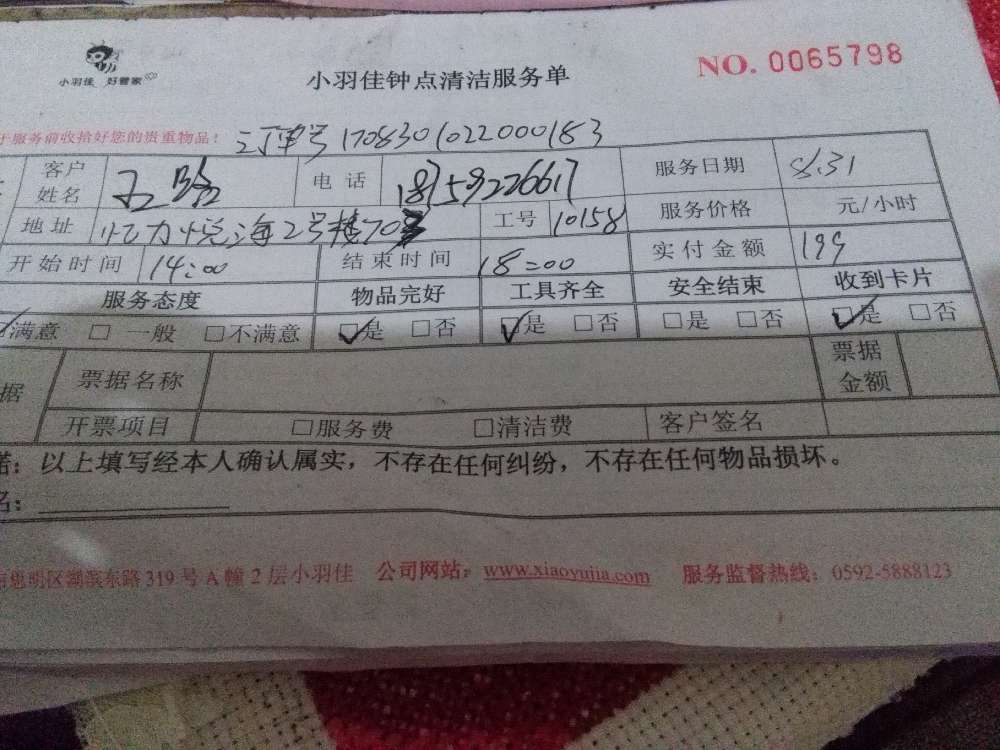 小羽佳 好管家
小羽佳钟点清洁服务单
NO. 0065798
于服务前收拾好您的贵重物品!
订单号 1708301022000183
客户姓名 电话 18759226617 服务日期 8.31
地址 2号楼70 工号 10158 服务价格 元/小时
开始时间 14:00 结束时间 18:00 实付金额 199
服务态度 物品完好 工具齐全 安全结束 收到卡片
满意 □ 一般 □不满意 是 □否 是 □否 □是 □否 是 □否
据 票据名称 票据金额
开票项目 □服务费 □清洁费 客户签名
诺:以上填写经本人确认属实,不存在任何纠纷,不存在任何物品损坏。
名:
思明区湖滨东路 319 号 A 幢 2 层小羽佳 公司网站:www.xiaoyujia.com 服务监督热线:0592-5888123